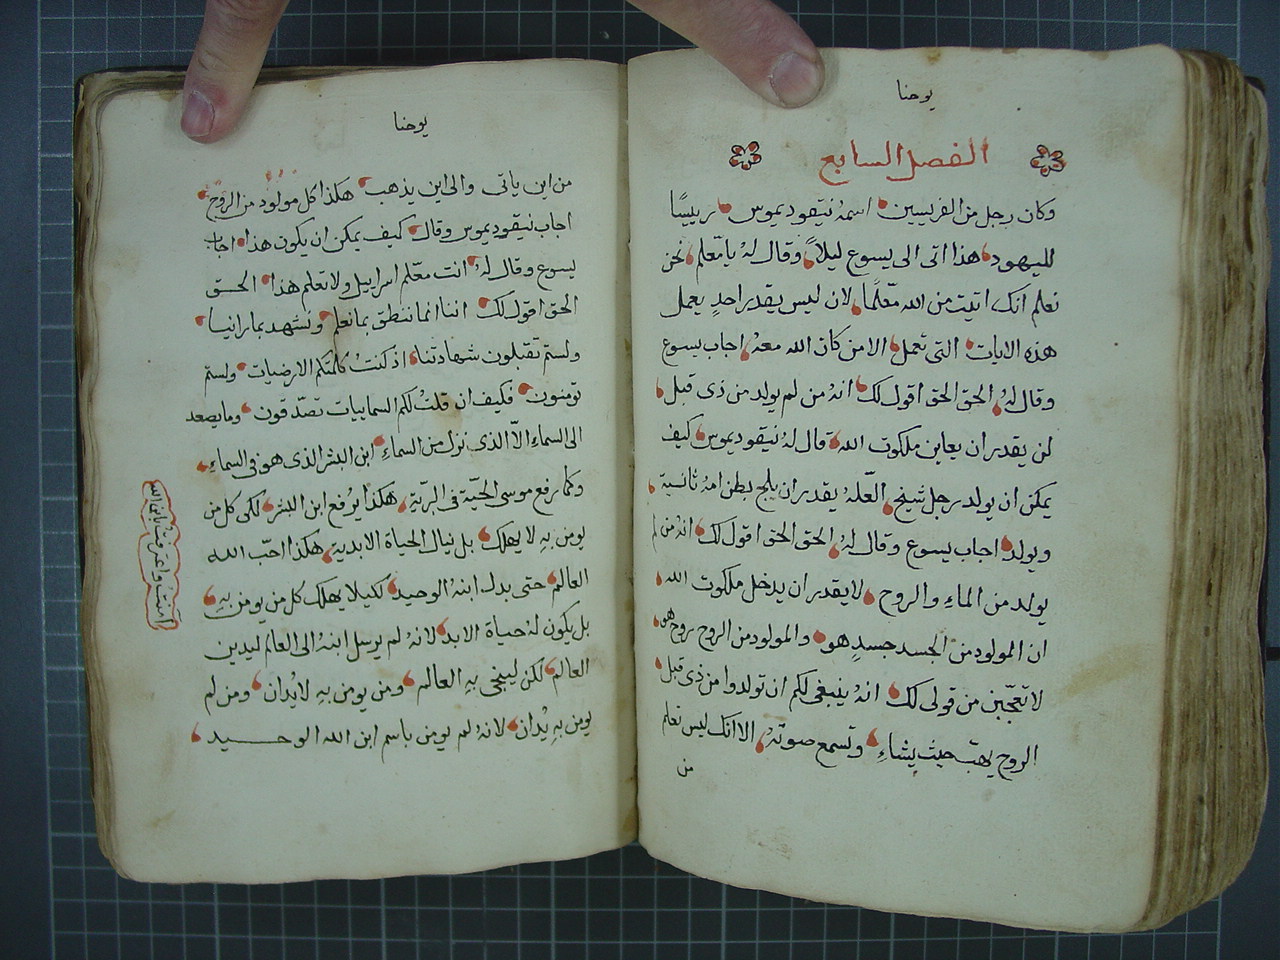 يوحنا
الفصل السابع
وكان رجل من الفريسين اسمه نيقوديموس رييسًا
لليهود هذا اتى الى يسوع ليلاً وقال لهُ يا معلم نحن
نعلم انك اتيت من الله معّلمًا لان ليس يقدر احدٍ يعمل
هذه الايات التي تعمل الا من كان الله معهُ اجاب يسوع
وقال لهُ الحق الحق اقول لك انهُ من لم يولد من ذى قبل
لن يقدر ان يعاين ملكوت الله قال لهُ نيقوديموس كيف
يمكن ان يولد رجل شيخ العلّهُ يقدر ان يلج بطن امهُ ثانيية
ويولد اجاب يسوع وقال لهُ الحق الحق اقول لك انهُ من لم
يولد من الماءِ والروح لا يقدر ان يدخل ملكوت الله
ان المولود من الجسد جسدٍ هو والمولود من الروح روح هو
لا تعجّبن من قولى لك انهُ ينبغى لكم ان تولدوا من ذى قبل
الروح يهبّ حيث يشاءِ وتسمع صوتهُ الا انك ليس تعلم
من
يوحنا
من اين ياتى والى اين يذهب هكذا كل مولود من الروح
اجاب نيقوديموس وقال كيف يمكن ان يكون هذا اجاب
يسوع وقال لهُ انت معّلم اسراييل ولا تعلم هذا الحق
الحق اقول لك اننا انما ننطق بما نعلم ونشهد بما راينا
ولستم تقبلون شهادتنا اذ كنتُ كلمتكم الارضيات ولستم
تومنون فكيف ان قلتُ لكم السماييات تصدّقون وما يصعد
الى السماءِ الاّ الذى نزل من السماءِ ابن البشر الذى هو فى السماءِ
وكما رفع موسى الحيّة فى البريّة هكذا يُرفع ابن البشر لكى كل من
يومن بهِ لا يهلك بل نيال الحياة الابدية هكذا احبّ الله
العالم حتى بدل ابنهُ الوحيد لكيلا يهلك كل من يومن بهِ
بل يكون لهُ حياة الابد لانهُ لم يرسل ابنهُ الى العالم ليدين
العالم لكن لينجى بهِ العالم ومن يومن بهِ لا يُدان ومن لم
يومن بهِ يُدان لانهُ لم يومن باسم ابن الله الوحيد
امنت واعرفت بابن الله